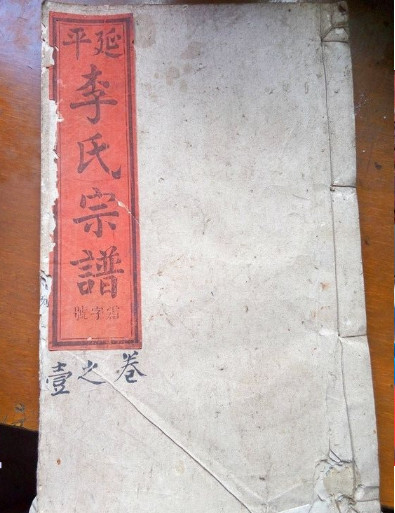 延平
李氏宗譜
字號
卷之壹